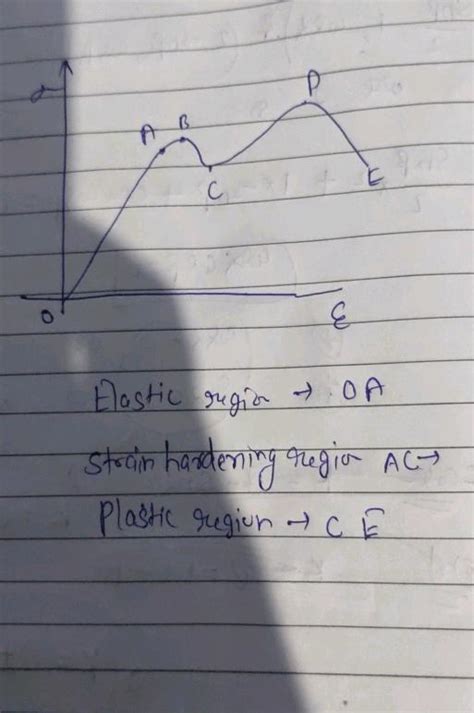 σ
A B D
C E
O ε
Elastic region → OA
Strain hardening region AC→
Plastic region → CE